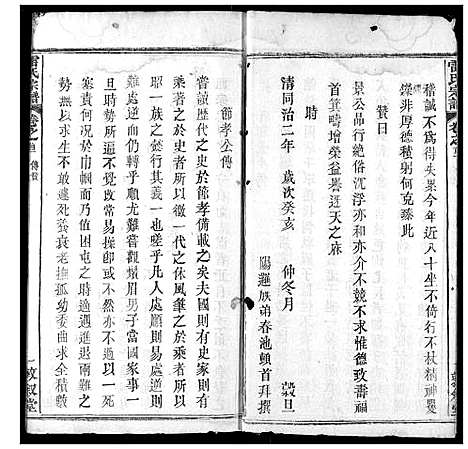 雷氏宗譜
稽誠不爲得失累今年近八十坐不倚行不杖精神矍
鑠非厚德積躬何克臻此
贊曰
景公品行絶俗沉浮亦和亦介不競不求惟德致壽福
首箕疇增榮益譽迓天之庥
時
清同治二年 歲次癸亥 仲冬月 穀旦
陽邏族弟春池頓首拜撰
雷氏宗譜 卷之 傳首
節孝公傳
嘗讀歷代之史於節孝備載之矣夫國則有史家則有
乘著之於史者所以徵一代之休風筆之於乘者所以
昭一族之行其義一也嗟乎人處順則易處逆則
難逆而仍轉乎順尤難嘗觀鬚眉男子當國家事一
日時勢不與改常易操卽或不然亦不過以一死
塞責而止耳乃值困屯之時遇多艱之遭際
勢無以求生不敢遽死葵衰老撫孤幼委曲求全積數
一 敦敘堂